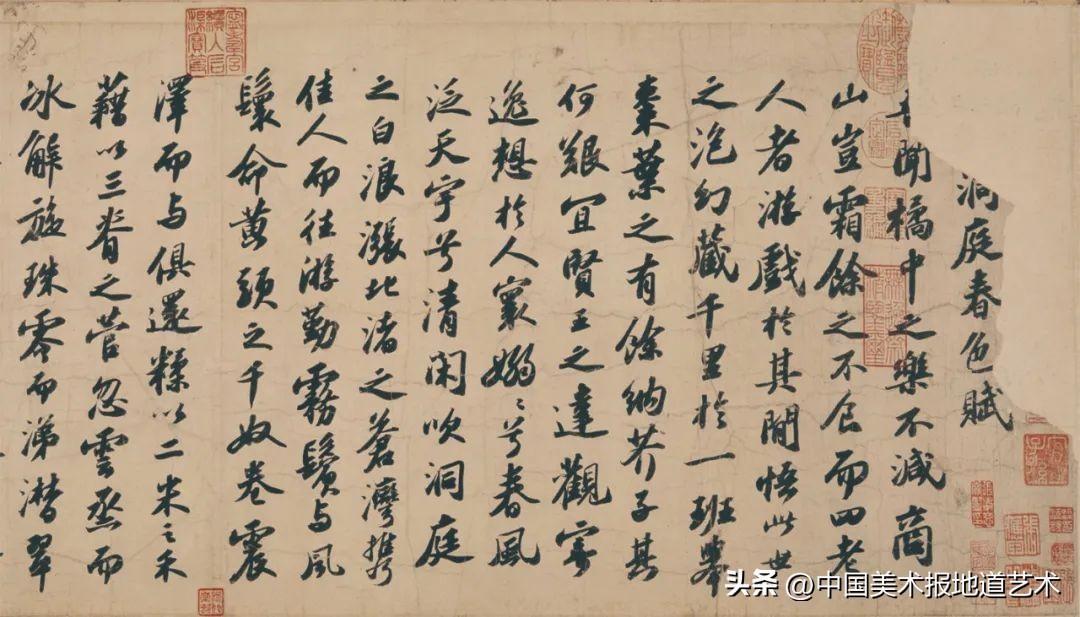 洞庭春色賦
聞橘中之樂不減商
山豈霜餘之不食而四老
人者游戲於其間悟此世
之泡幻藏千里於一班舉
棗葉之有餘納芥子其
何艱宜賢王之達觀寄
逸想於人寰嫋〻兮春風
泛天宇兮清閑吹洞庭
之白浪漲北渚之蒼灣攜
佳人而往游勤霧鬢与風
鬟命黄頭之千奴卷震
澤而与俱還糅以二米之禾
藉以三脊之菅忽雲烝而
冰解旋珠零而涕潸翠
头条 @中国美术报地道艺术